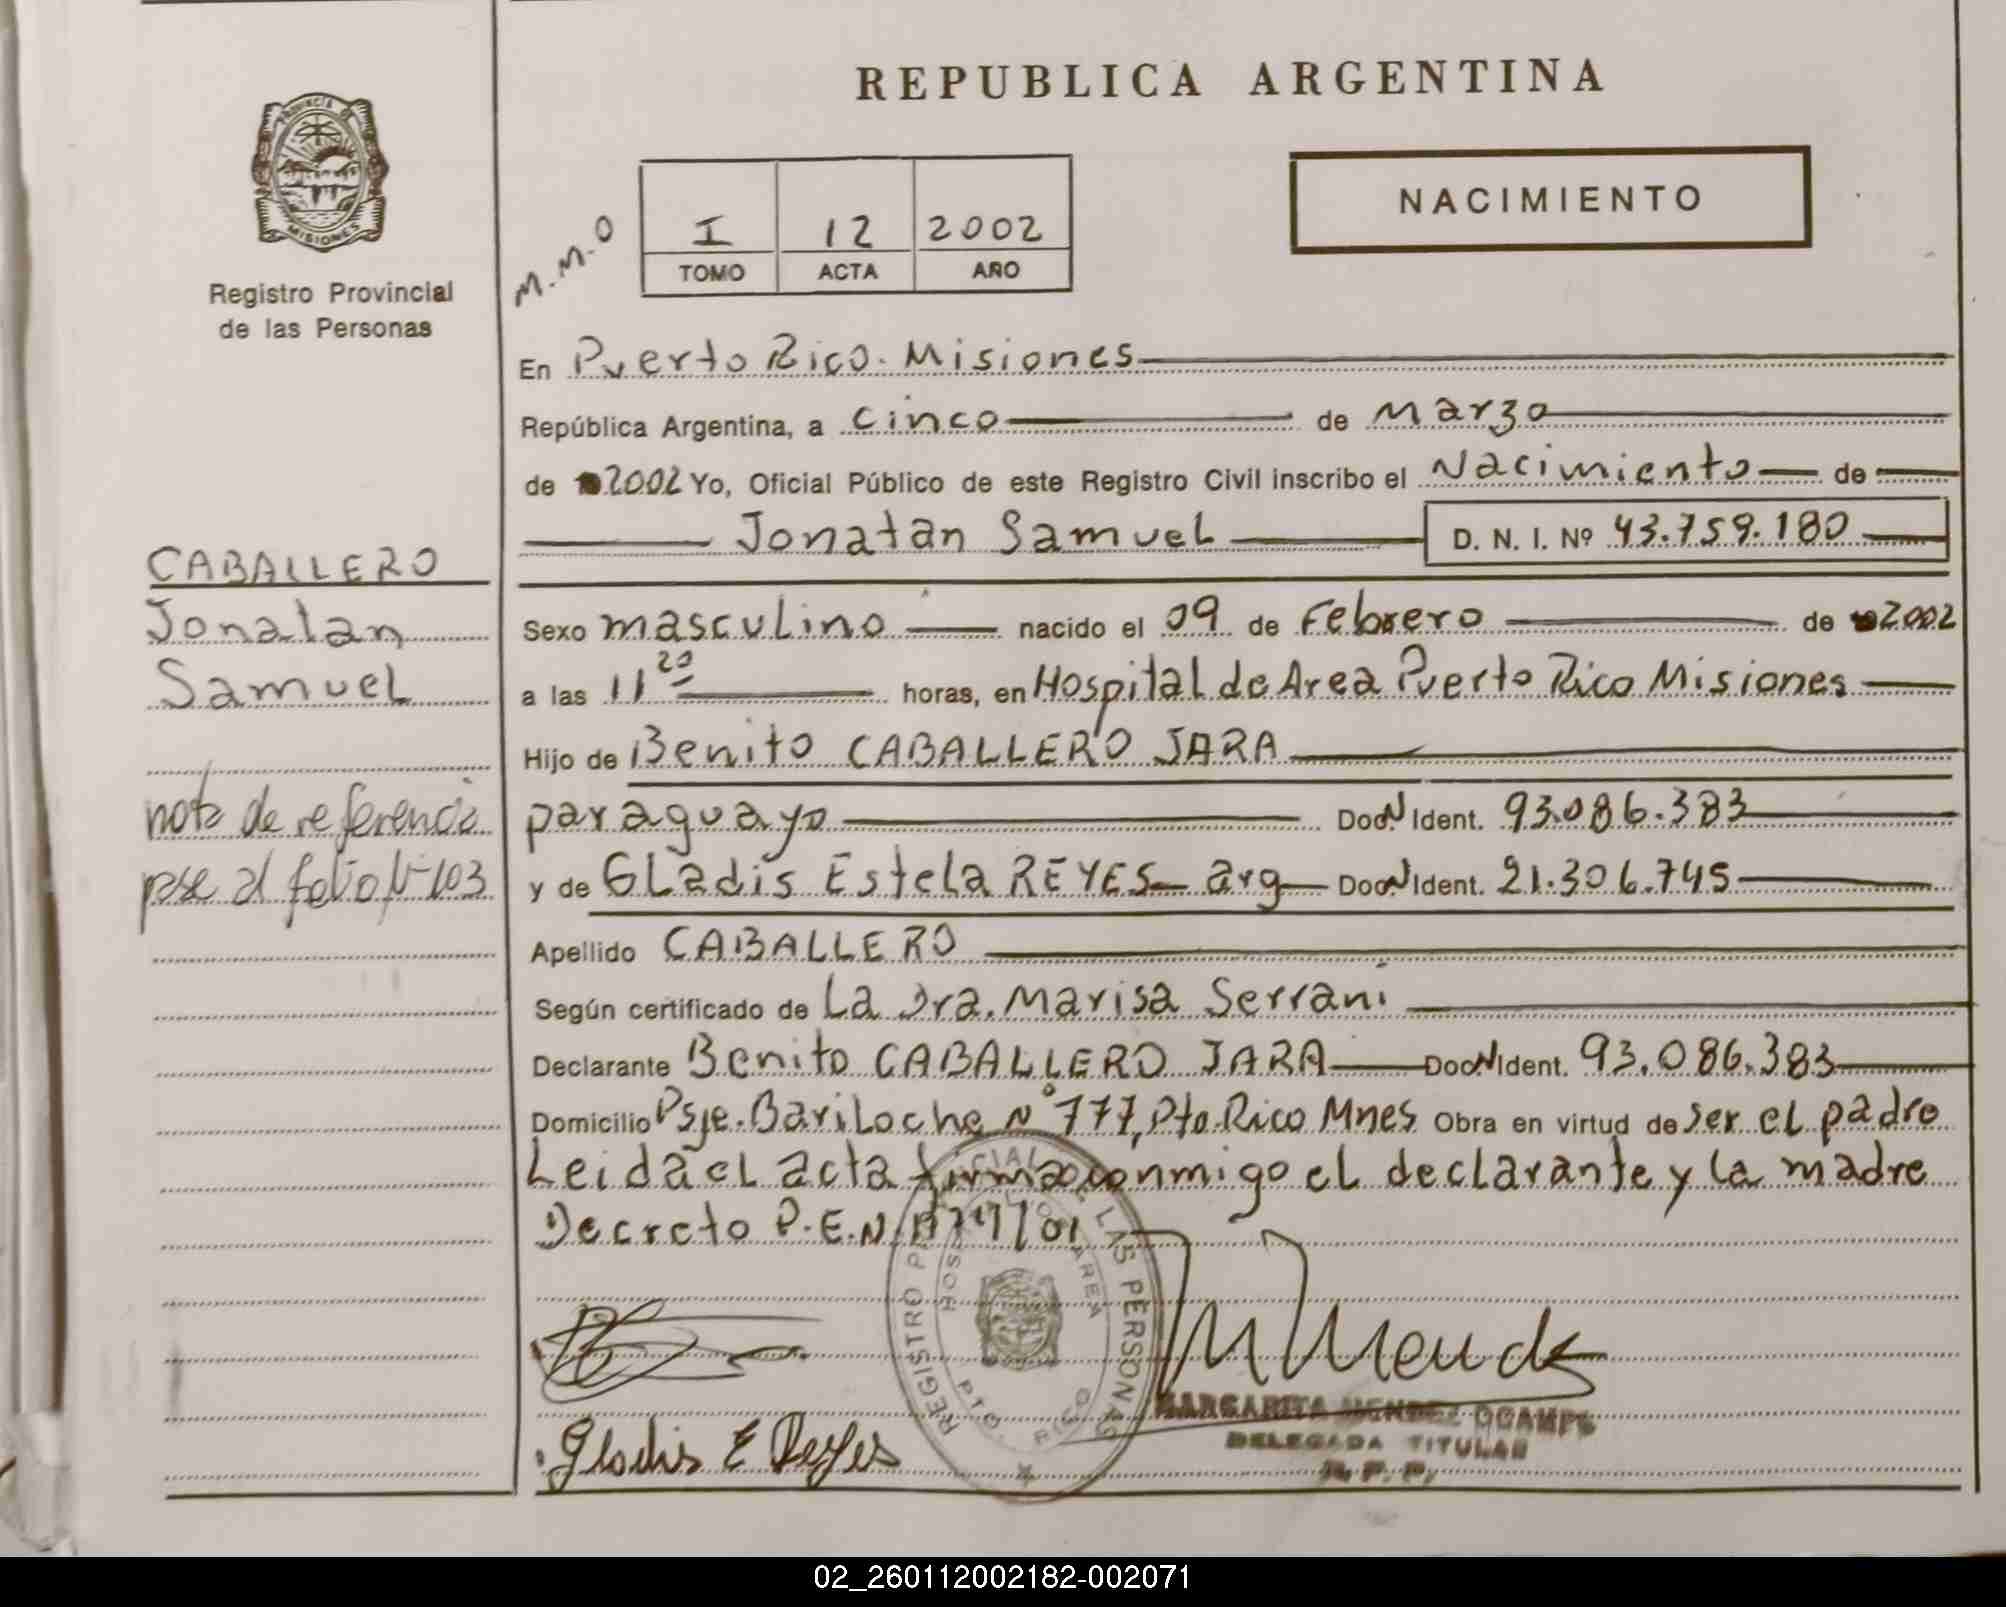 REPUBLICA ARGENTINA
PROVINCIA DE
MISIONES
Registro Provincial
de las Personas
M.M.O
I 12 2002
TOMO ACTA AÑO
NACIMIENTO
En Puerto Rico. Misiones
República Argentina, a cinco de Marzo
de 2002 Yo, Oficial Público de este Registro Civil inscribo el Nacimiento de
Jonatan Samuel D. N. I. Nº 43.759.180
CABALLERO
Jonatan
Samuel
nota de referencia
pase al folio Nº 103
Sexo masculino nacido el 09 de Febrero de 2002
a las 11 20 horas, en Hospital de Area Puerto Rico Misiones
Hijo de Benito CABALLERO JARA
paraguayo Doc. N Ident. 93.086.383
y de Gladis Estela REYES arg Doc. N Ident. 21.306.745
Apellido CABALLERO
Según certificado de La Dra. Marisa Serrani
Declarante Benito CABALLERO JARA Doc. N Ident. 93.086.383
Domicilio Psje. Bariloche Nº 777, Pto. Rico Mnes Obra en virtud de ser el padre
Leida el acta firma conmigo el declarante y la madre
Decreto P.E.N.
REGISTRO PROVINCIAL DE LAS PERSONAS
HOSPITAL DE AREA
PTO. RICO
Gladis E Reyes
MARGARITA MENDEZ OCAMPO
DELEGADA TITULAR
R. P. P.
02_260112002182-002071